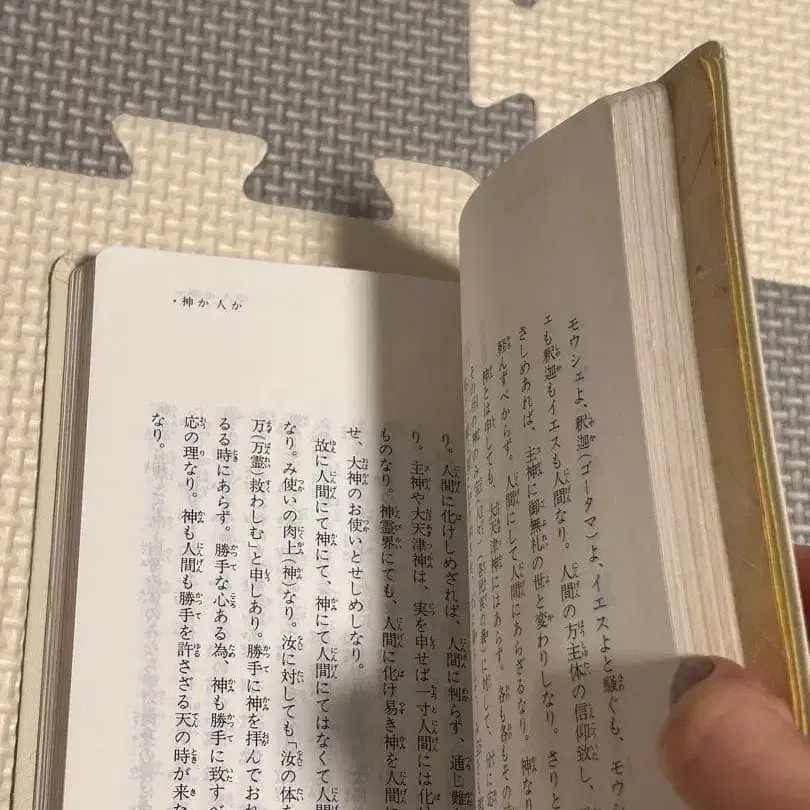 モウシェよ、釈迦(ゴータマ)よ、イエスよと騒ぐも、モウシ
ェも釈迦もイエスも人間なり。人間の方主体の信仰致し、
さしめあれば、主神に御無礼の世と変わりしなり。さりと
軽んずべからず。人間にして人間にあらざるなり。神なり
神とは申しても、大天津神にはあらず、各も各もその
・神か人か
り。人間に化けしめざれば、人間に判らず、通じ難
り。主神や大天津神は、実を申せば一寸人間には化い
ものなり。神霊界にても、人間に化け易き神を人間
せ、大神のお使いとせしめしなり。
故に人間にて神にて、神にて人間にてはなくて人間
なり。み使いの肉上(神)なり。汝に対しても「汝の体を
万(万霊)救わしむ」と申しあり。勝手に神を拝んでおれ
るる時にあらず。勝手な心ある為、神も勝手に致すべ
応の理なり。神も人間も勝手を許さざる天の時が来た
なり。